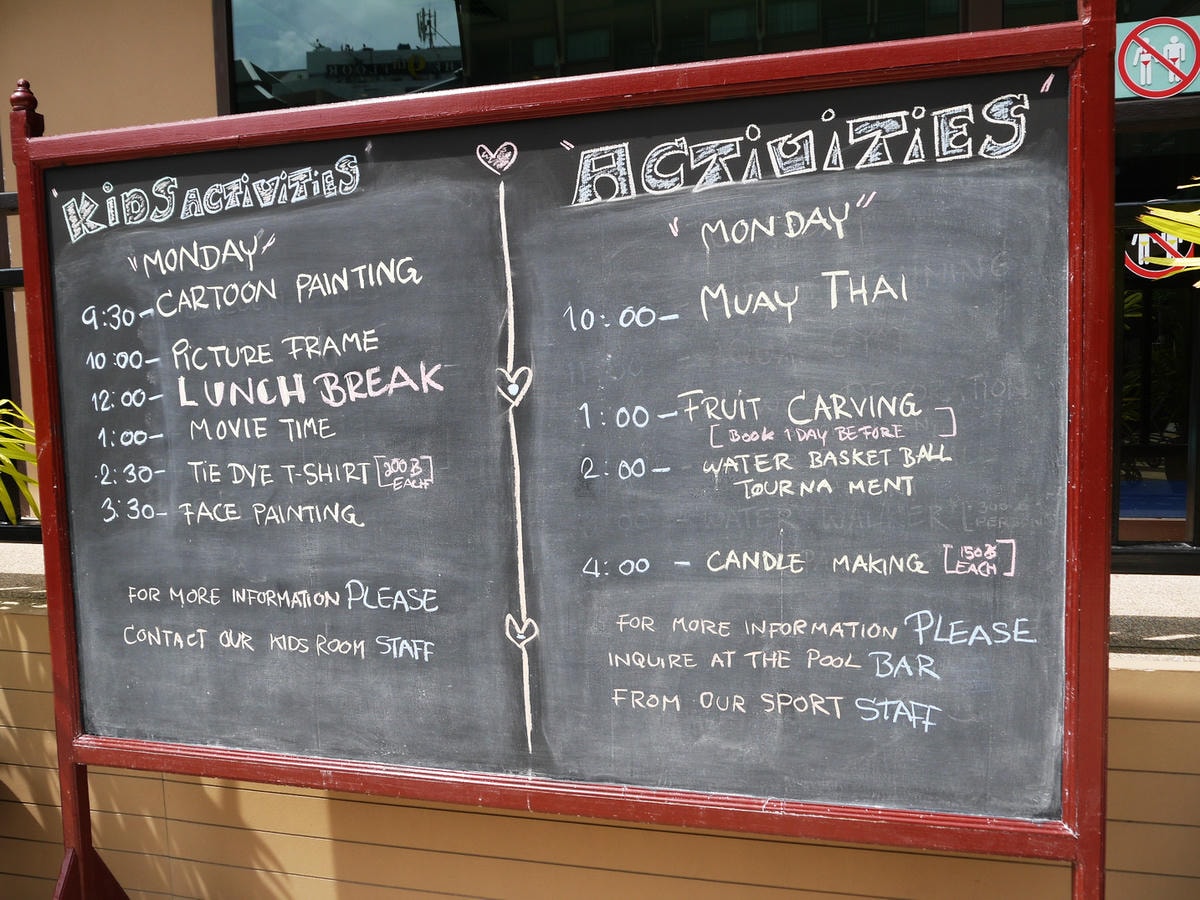 "KiDS ACTiViTiES"
"MONDAY"
9:30- CARTOON PAINTING
10:00- PiCTURE FRAME
12:00- LUNCH BREAK
1:00- MOVIE TIME
2:30- TiE DYE T-SHIRT [200฿ EACH]
3:30- FACE PAINTING
FOR MORE INFORMATION PLEASE
CONTACT OUR KIDS ROOM STAFF
"ACTiViTiES"
"MONDAY"
10:00- MUAY THAI
1:00- FRUIT CARVING
[BOOK 1 DAY BEFORE]
2:00- WATER BASKET BALL
TOURNA MENT
4:00 - CANDLE MAKING [150฿ EACH]
FOR MORE INFORMATION PLEASE
INQUIRE AT THE POOL BAR
FROM OUR SPORT STAFF